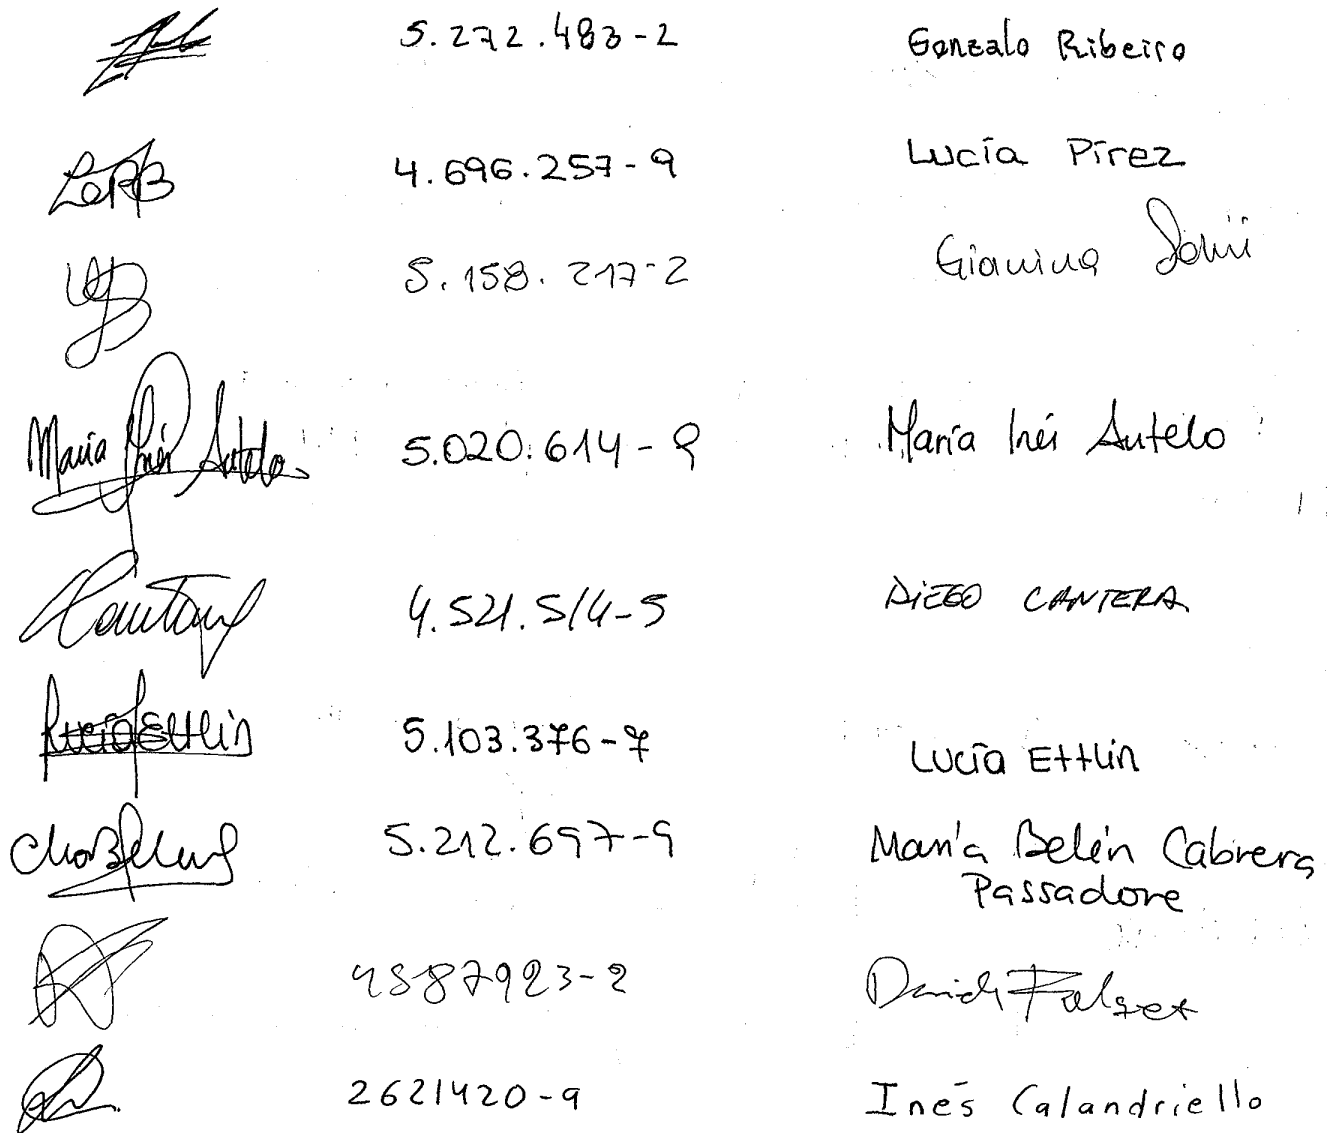 5.272.483-2 Gonzalo Ribeiro
4.696.257-9 Lucía Pírez
5.158.217-2 Gianina
María Inés Antelo 5.020.614-9 María Inés Antelo
4.521.514-5 DIEGO CANTERA
Lucía Ettlin 5.103.376-7 Lucía Ettlin
5.212.697-9 María Belén Cabrera
Passadore
4887923-2 David
2621420-9 Inés Calandriello